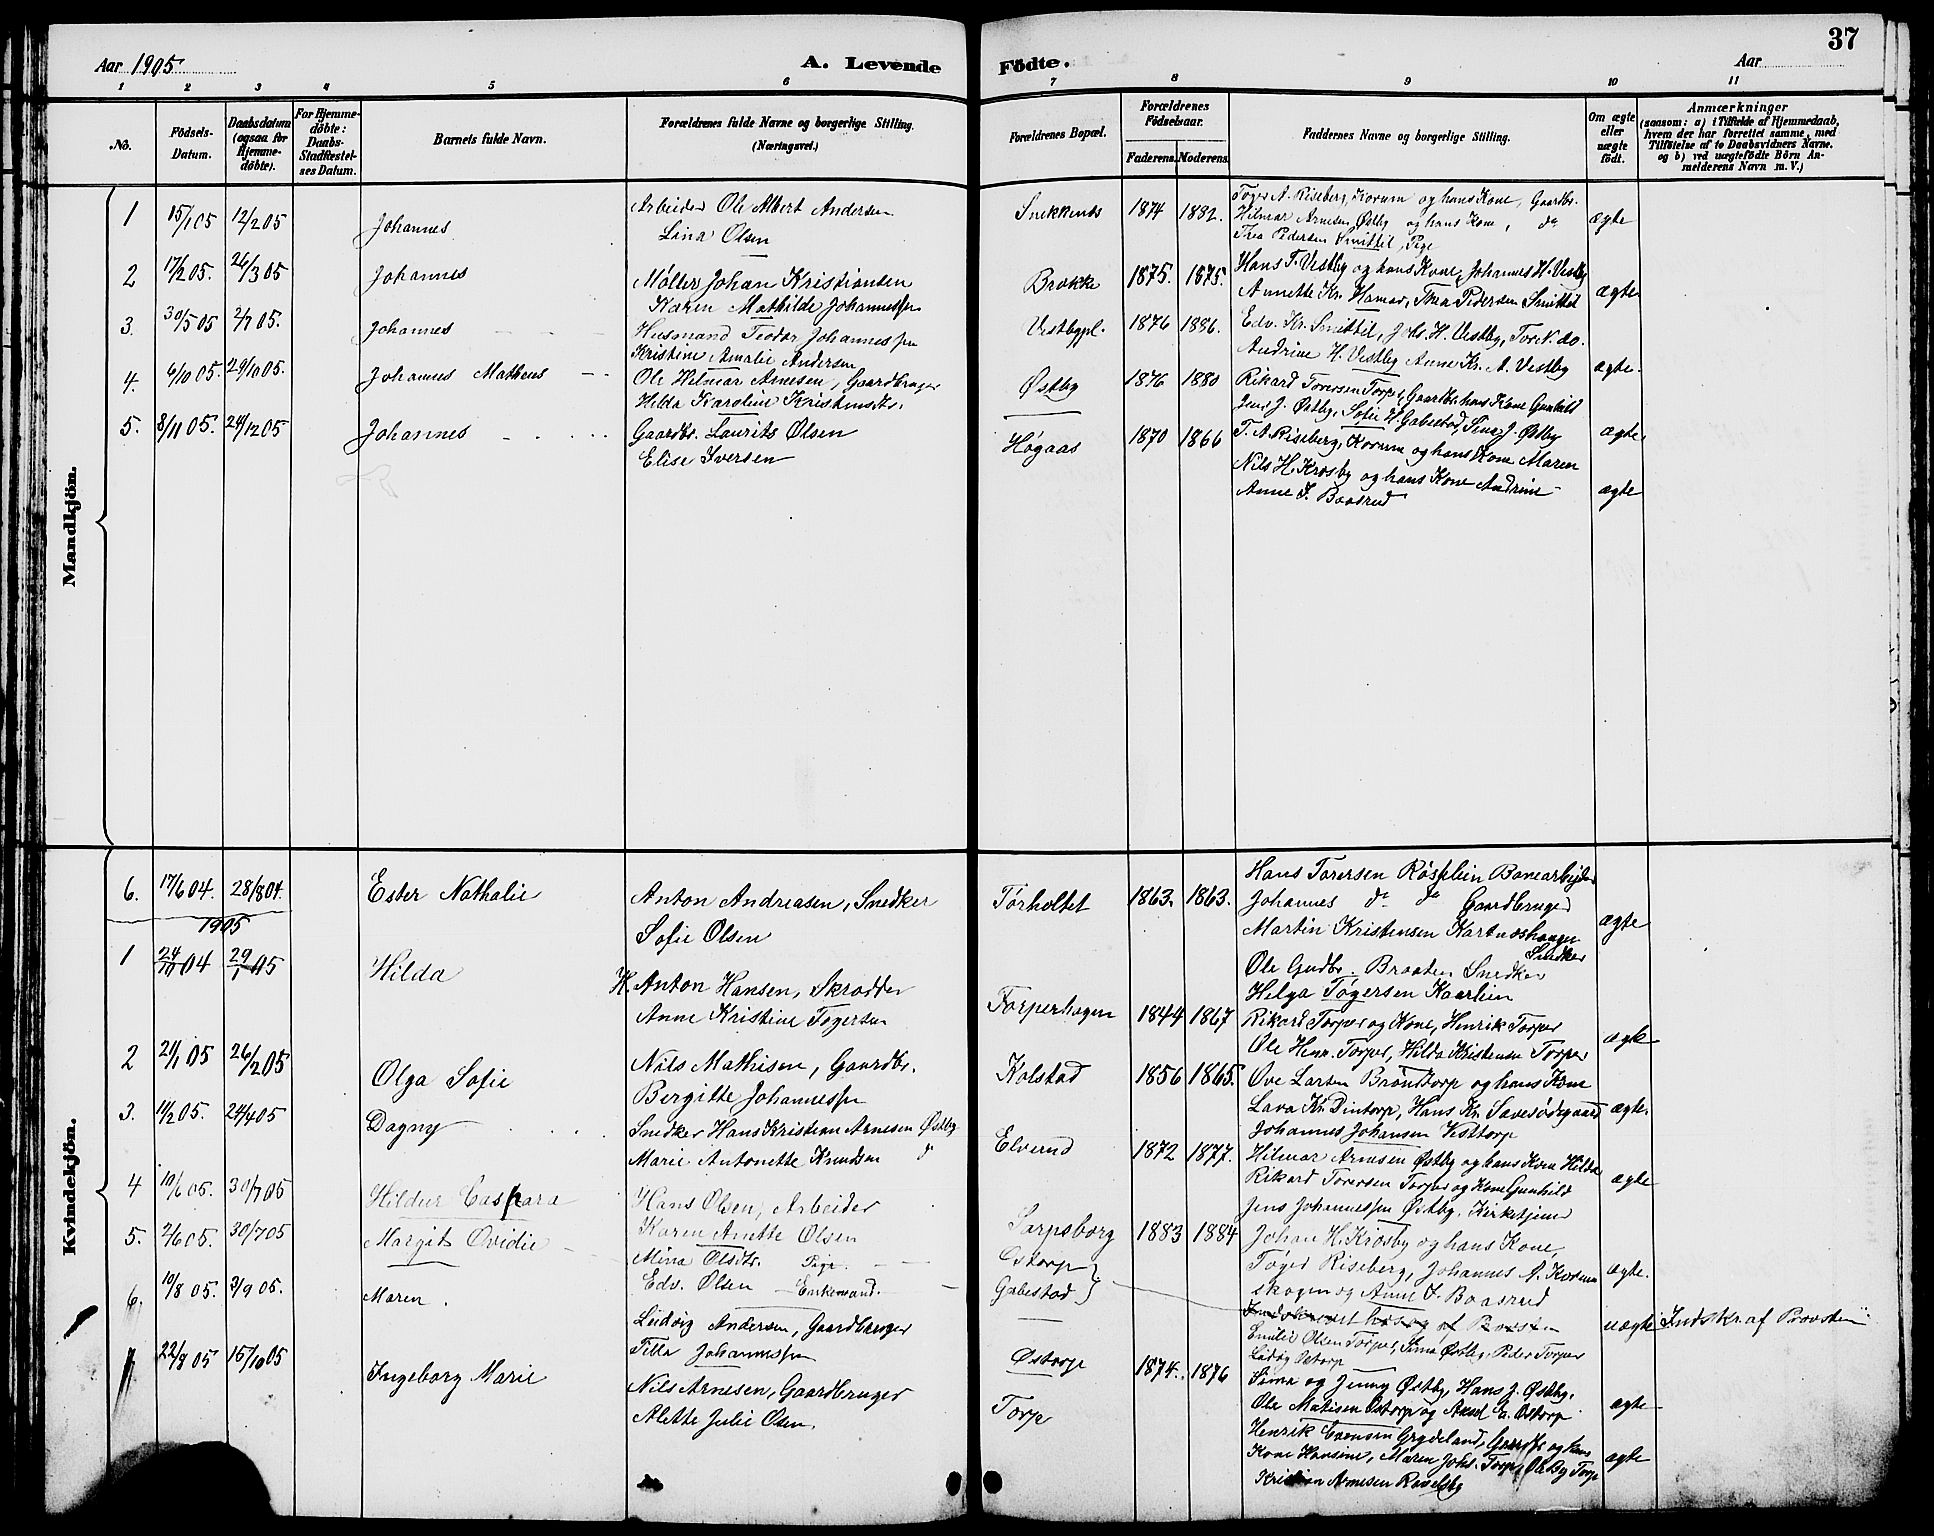 37
Aar 1905
A. Levende
Födte.
Aar
1 2 3 4 5 6 7 8 9 10 11
No.
Födsels-Datum.
Daabsdatum (ogsaa for Hjemmedöbte).
For Hjemmedöbte: Daabs-Stadfæstelses Datum.
Barnets fulde Navn.
Forældrenes fulde Navne og borgerlige Stilling.
(Næringsvei.)
Forældrenes Bopæl.
Forældrenes Fødselsaar.
Faderens. Moderens.
Faddernes Navne og borgerlige Stilling.
Om ægte eller uægte født.
Anmærkninger
(saasom: a) i Tilfælde af Hjemmedaab,
hvem der har forrettet samme, med
Tilföielse af to Daabsvidners Navne.
og b) ved uægtefödte Börn An-
melderens Navn m. V.)
Mandkjön.
1 15/1 05 12/2 05 Johannes
Arbeider Ole Albert Andersen
Lina Olsen
Snekkenes 1874 1882.
Töger A. Riseberg, Korum og hans Kone, Gaardbr.
Hilmar Arnesen Østby og hans Kone, do
Thea Pedersen Smittil, Pige
ægte
2 17/2 05. 26/3 05 Johannes
Møller Johan Kristiansen
Karen Mathilde Johannessen
Brække 1875. 1875.
Hans T. Vestby og hans Kone, Johannes H. Vestby
Annette Kr. Hamar, Thea Pedersen Smittil
ægte
3. 30/5 05 2/7 05. Johannes
Husmand Teodor Johannessen
Kristine Amalie Andersen
Vestbypl. 1876 1886.
Edv. Kr. Smittil, Johs. H. Vestby, Tor N. do.
Andrine H. Vestby Anne Kr. A. Vestby
ægte.
4. 6/10 05. 29/10 05. Johannes Matheus
Ole Hilmar Arnesen, Gaardbruger
Hilda Karoline Kristensdtr.
Østby 1876 1880
Rikard Torersen Torper, Gaardbr. hans Kone Gunhild
Jens J. Østby, Sofie H. Gabestad, Sina J. Østby
ægte.
5. 8/11 05. 24/12 05 Johannes
Gaardbr. Laurits Olsen
Elise Iversen
Høgaas 1870 1866
T. A. Riseberg, Korum og hans Kone Maren
Nils H. Krosby og hans Kone Andrine
Anne I. Baasrud
ægte
Kvindekjön.
6. 17/6 04. 28/8 04. Ester Nathalie
Anton Andreasen, Snedker
Sofie Olsen
Tørholtet 1863. 1863.
Hans Torersen Røsslien Banearbejder
Johannes do do Gaardbruger
Martin Kristensen
Snedker
Ole Gudbr. Braaten Snedker
Helga Tøgersen Kaarlien
ægte
1905
1 24/10 04 29/1 05 Hilda
H. Anton Hansen, Skrædder
Anne Kristine Tøgersen
Torperhagen 1844 1867
Rikard Torper og Kone, Henrik Torper
Ole Henr. Torper, Hilda Kristensen Torper
ægte
2 21/1 05 26/2 05 Olga Sofie
Nils Mathisen, Gaardbr.
Bergitte Johannessen
Kolstad 1856 1865.
Ove Larsen Brøndtorp og hans Kone
Lava Kr. Dintorp, Hans Kr. Savesødegaard
Johannes Johansen Vesttorp
ægte.
3. 11/2 05. 24/4 05 Dagny
Snedker Hans Kristian Arnesen Østby
Marie Antonette Knudsen do
Elverud 1872 1877.
Hilmar Arnesen Østby og hans Kone Hilda
Rikard Torersen Torper og Kone Gunhild
Jens Johannessen Østby, Kirketjener
ægte
4 10/6 05. 30/7 05 Hildur Caspara
Hans Olsen, Arbeider
Karen Anette Olsen
Sarpsborg 1883 1884
Johan H. Krosby og hans Kone,
Tøger Riseberg, Johannes A. Korum
skogen og Anne I. Baasrud
ægte.
5. 2/6 05. 30/7 05 Margit Ovidie
Mina Olsdtr. Pige.
Edv. Olsen Enkemand.
Ostorp
Gabestad
Emilie Olsen Torper, Sina Østby, Peder Torper
Ludvig Ostorp
uægte Indskr. af Provsten
6. 10/8 05. 3/9 05. Maren.
Ludvig Andersen, Gaardbruger
Tilla Johannessen
Østorp 1874. 1876
Sina og Jenny Østby, Hans J. Østby.
Ole Matisen Ostorp og Aksel E. Ostorp
ægte
22/8 05 15/10 05 Ingeborg Marie
Nils Arnesen, Gaardbruger
Alette Julie Olsen
Torp
Henrik Evensen Grydeland, Gaardbr og hans
Kone Hansine, Maren Johs. Torp, Ole By Torp
Kristian Arnesen
ægte